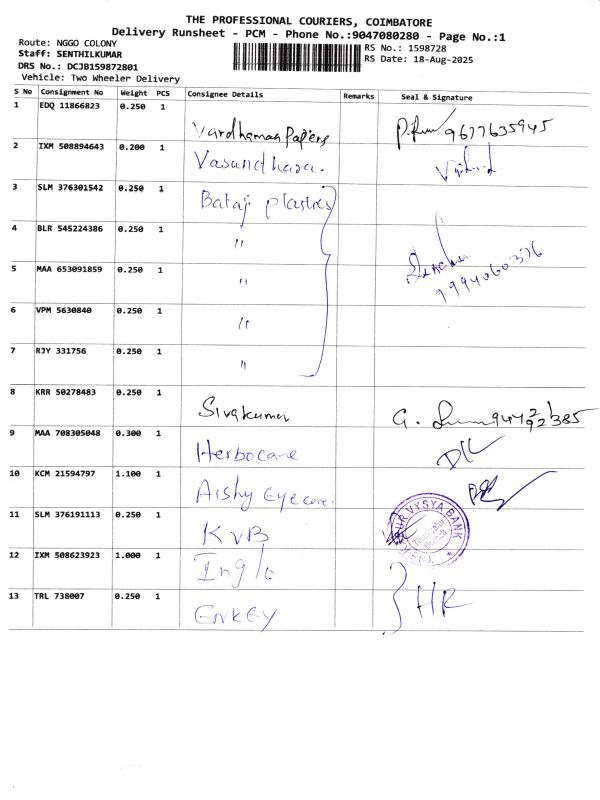 THE PROFESSIONAL COURIERS, COIMBATORE
Delivery Runsheet - PCM - Phone No.:9047080280 - Page No.:1
Route: NGGO COLONY
Staff: SENTHILKUMAR
DRS No.: DCJB159872801
Vehicle: Two Wheeler Delivery
RS No.: 1598728
RS Date: 18-Aug-2025
S No Consignment No Weight PCS Consignee Details Remarks Seal & Signature
1 EDQ 11866823 0.250 1 Vardhaman Papers 9677635945
2 IXM 508894643 0.200 1 Vasundhara.
3 SLM 376301542 0.250 1 Balaji plastics
4 BLR 545224386 0.250 1 "
5 MAA 653091859 0.250 1 " 9994060376
6 VPM 5630840 0.250 1 "
7 RJY 331756 0.250 1 "
8 KRR 50278483 0.250 1 Sivakumar G.
9 MAA 708305048 0.300 1 Herbocare
10 KCM 21594797 1.100 1 Aishy Eye care.
11 SLM 376191113 0.250 1 KVB THE KARUR VYSYA BANK
12 IXM 508623923 1.000 1
13 TRL 738007 0.250 1 ENKEY HR